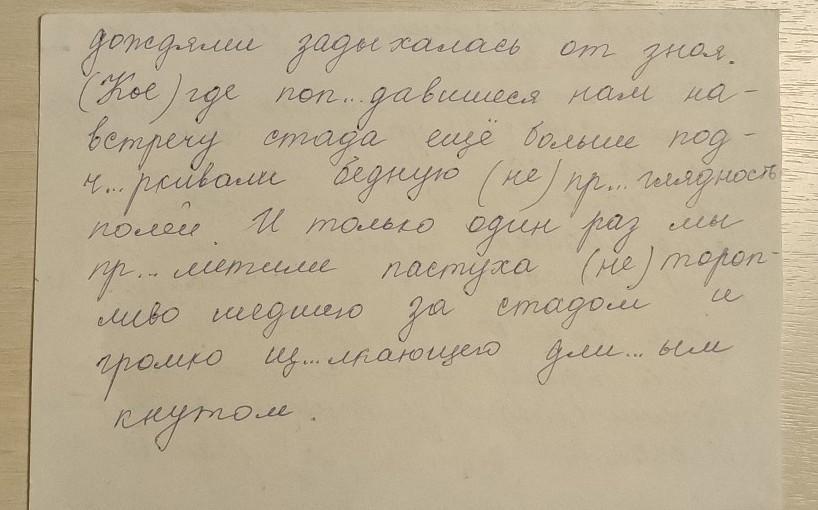 дождями задыхалась от зноя.
(Кое)где поп...давшиеся нам на-
встречу стада ещё больше под-
ч...ркивали бедную (не)пр...глядность
полей И только один раз мы
пр...метили пастуха (не)тороп-
ливо шедшего за стадом и
громко щ...лкающего дли...ым
кнутом.